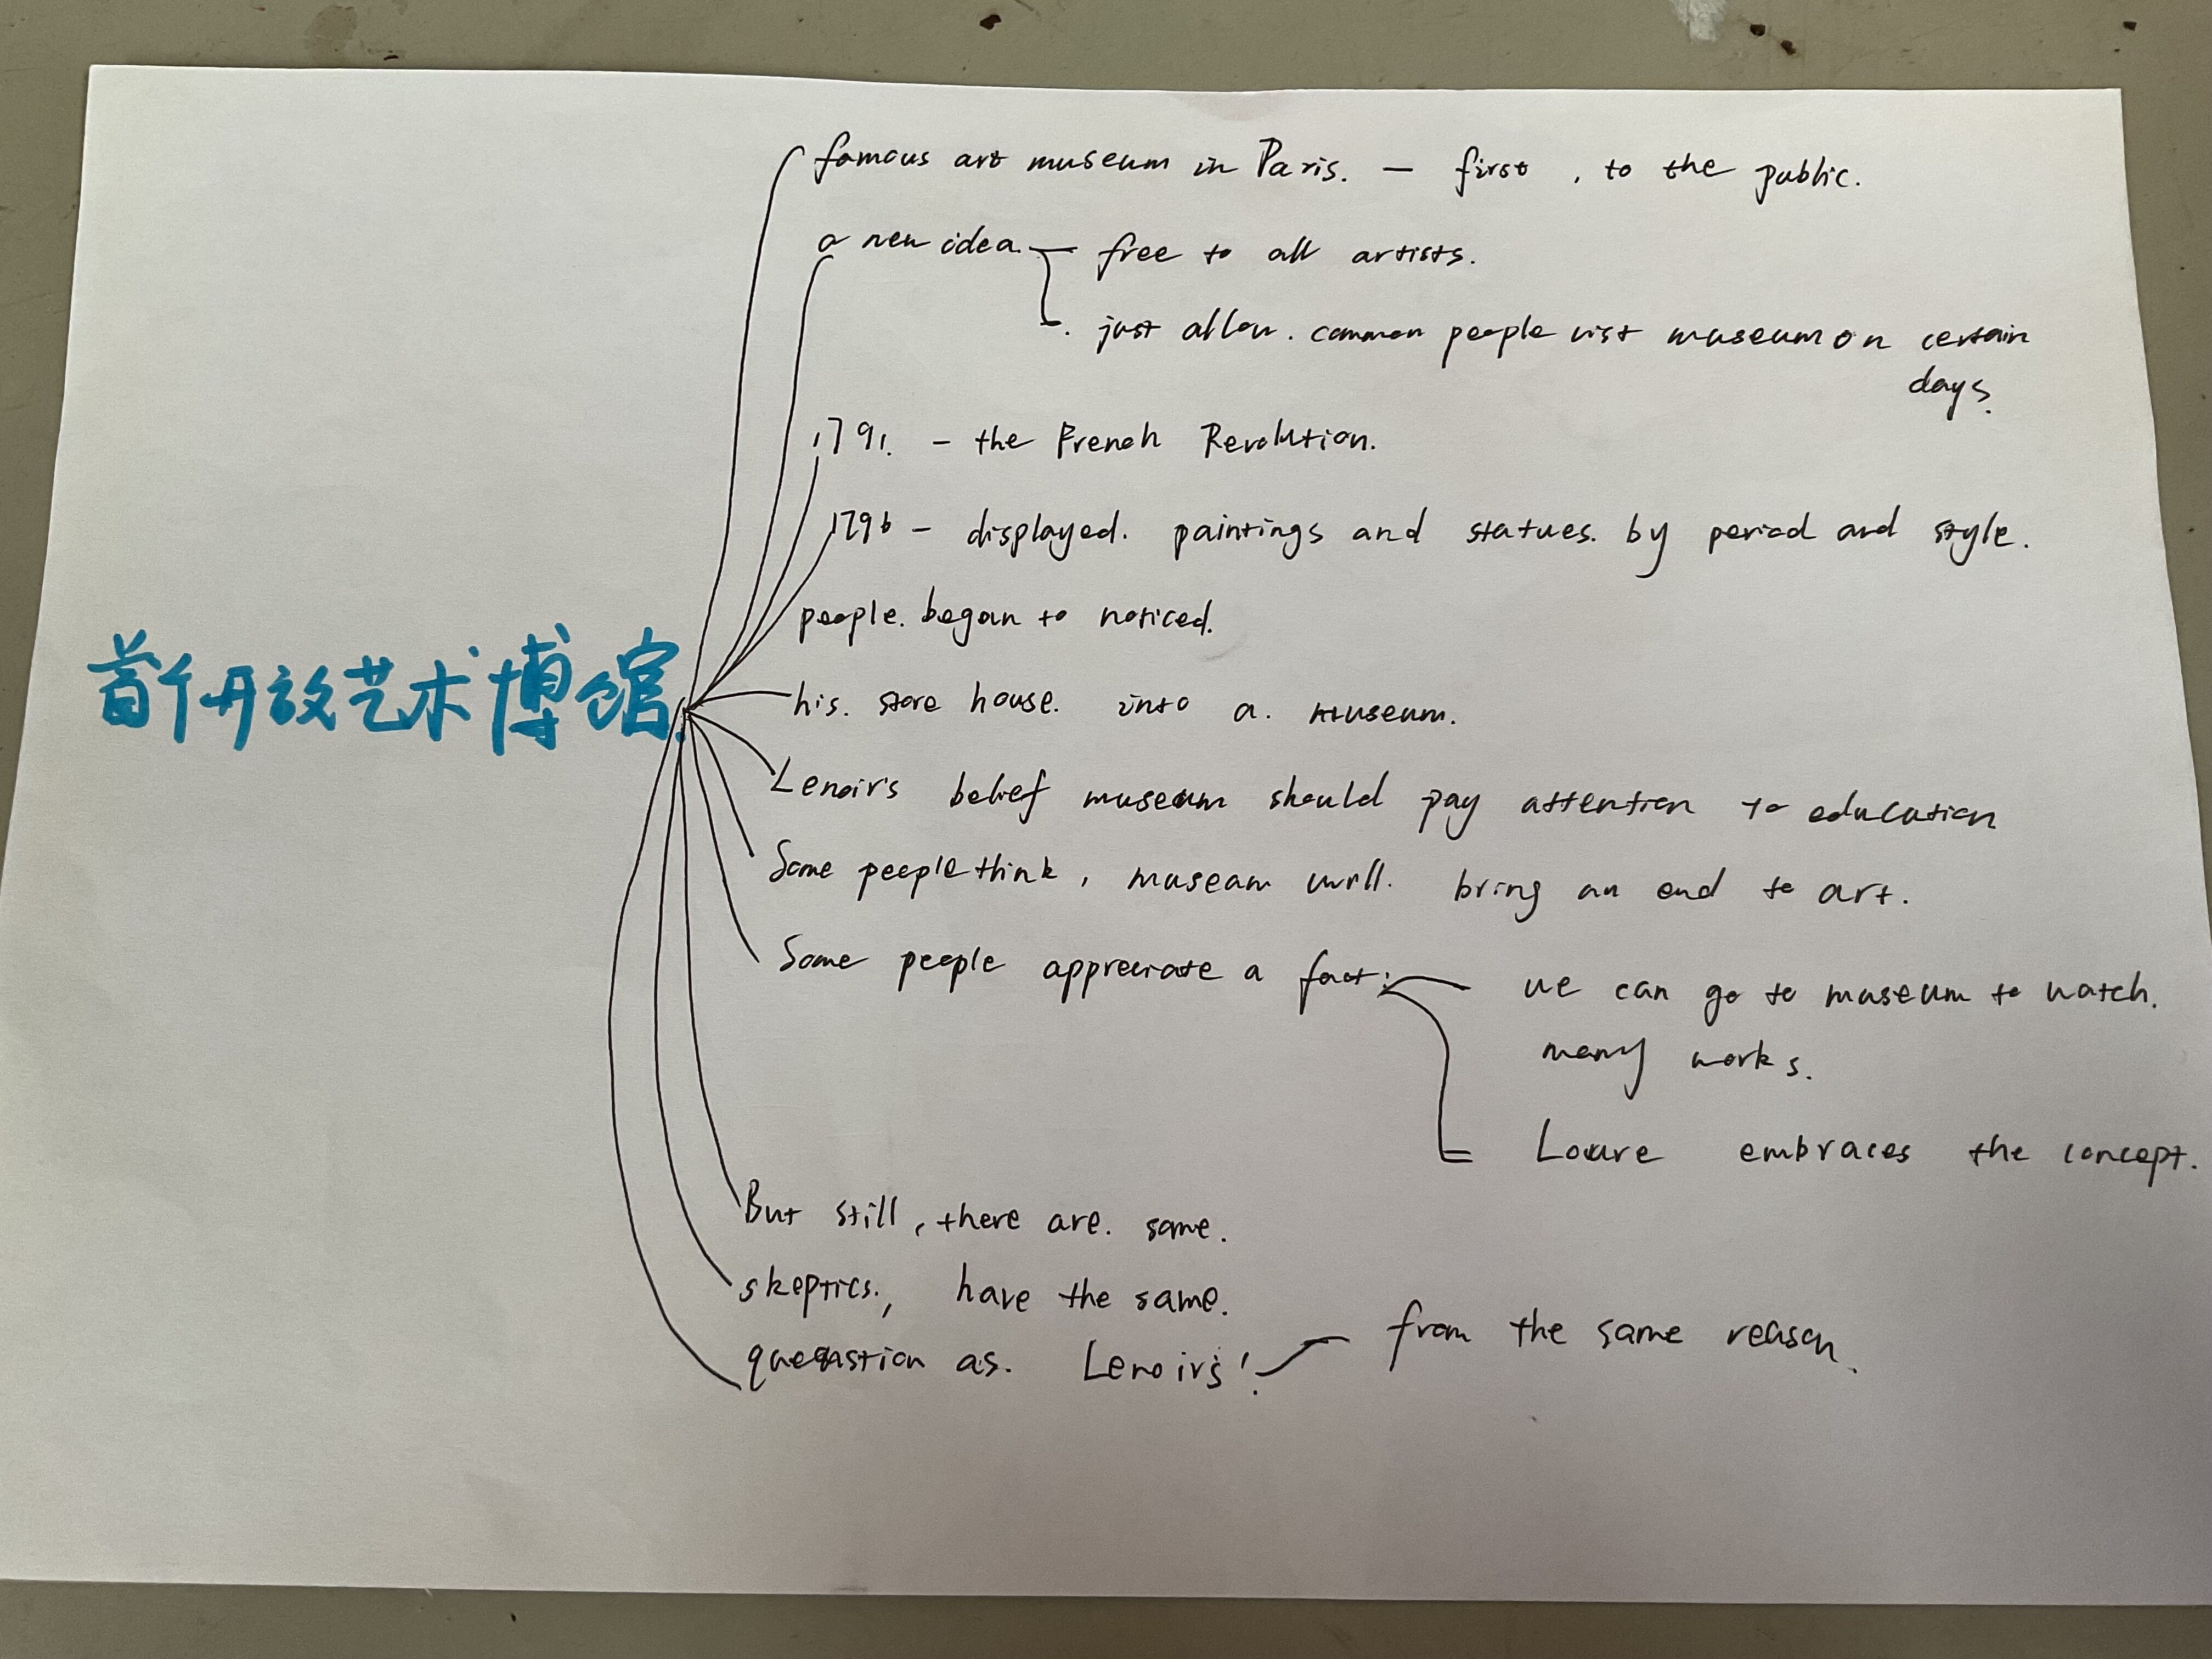 famous art museum in Paris. — first , to the public.
a new idea. — free to all artists.
just allow. common people vist museum on certain
days.
1791. — the French Revolution.
1796 — displayed. paintings and statues. by period and style.
people. began to noticed.
首个开放艺术博馆.
his. store house. into a. museum.
Lenoir's belief museum should pay attention to education
Some people think, museam will. bring an end to art.
Some people appreciate a fact: we can go to museum to watch.
many works.
Louvre embraces the concept.
But still, there are. some.
skeptics., have the same.
question as. Lenoir's'. from the same reason.